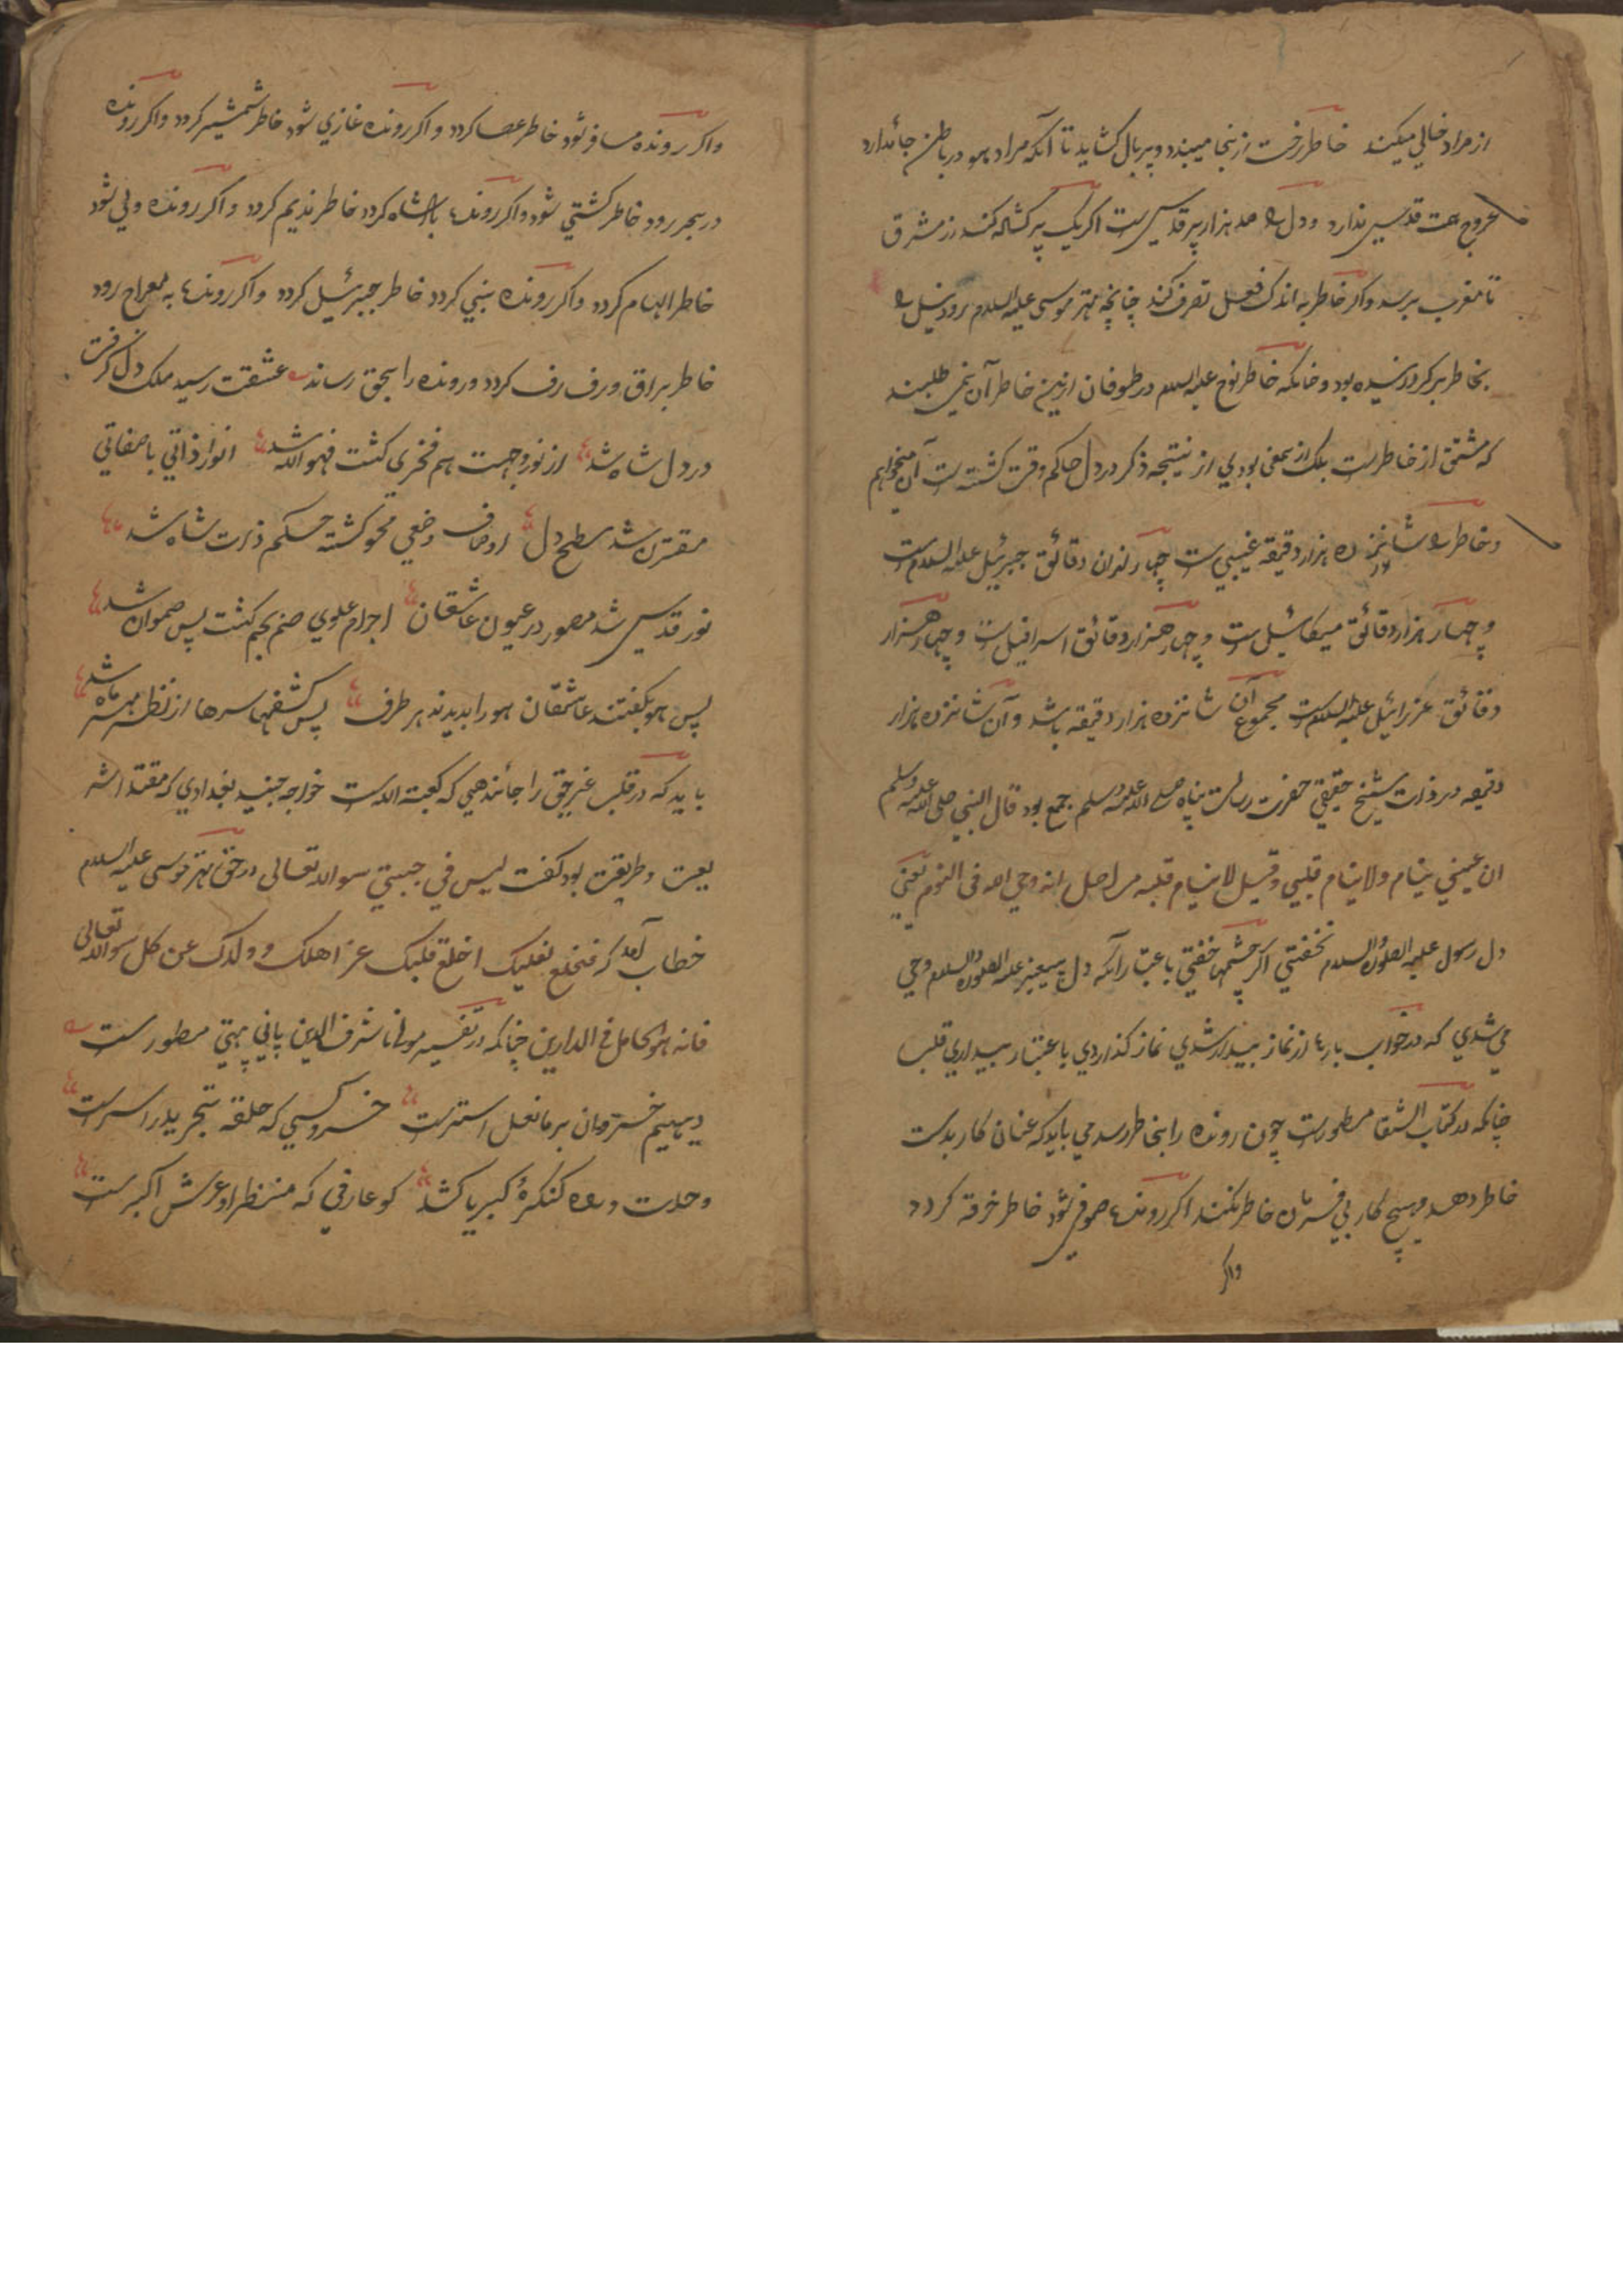 از مراد خالي ميکند خاطر رخت ازينجا ميبندد و پر بال کشايد تا آنکه مراد هو در باطن جا ندارد
عروج همت قدسي ندارد و دل را صد هزار پر قدسي ست اکر يک پر کشاده کند از مشرق
تا مغرب برسد و اکر خاطر به اندک فعل تصرف کند چنانچه مهتر موسي عليه السلام رود نيل را
بخاطر بر کرد رسيده بود و خانکه خاطر نوح عليه السلام در طوفان ازين خاطر آن نمي طلبند
که مشتق از خاطرست بلک از معني بودي از نتيجه ذکر در دل حاکم وقت کشته ست آن ميخواهم
و خاطر را شانزده هزار دقيقه غيبي ست چهار ازان دقائق جبرئيل عليه السلام ست
و چهار هزار دقائق ميکائيل ست و چهار هزار دقائق اسرافيل ست و چهار هزار
دقائق عزرائيل عليه السلام ست مجموع آن شانزده هزار دقيقه باشد و آن شانزده هزار
دقيقه در ذات شيخ حقيقي حضرت رسالت پناه صلي الله عليه وسلم جمع بود قال النبي صلي الله عليه وسلم
ان عيني ينام ولا ينام قلبي و قيل لا ينام قلبه من اجل انه وحي اليه في النوم يعني
دل رسول عليه الصلوة والسلام نخفتي اکر چشمها خفتي باعتبار آنکه دل پيغمبر عليه الصلوة والسلام وحي
مي شدي که در خواب بارها از نماز بيدار شدي نماز کذاردي باعتبار بيداري قلب
چنانکه در کتاب الشفا مسطورست چون رونده را بخاطر رسد مي بايد که عنان کار بدست
خاطر دهد و هيچ کار بي فرمان خاطر نکند اکر رونده صوفي شود خاطر خرقه کردد
واکر
واکر رونده مسافر شود خاطر عصا کردد و اکر رونده غازي شود خاطر شمشير کردد واکر رونده
در بحر رود خاطر کشتي شود واکر رونده بادشاه کردد خاطر نديم کردد و اکر رونده ولي شود
خاطر الهام کردد واکر رونده نبي کردد خاطر جبرئيل کردد واکر رونده به معراج رود
خاطر براق و رف رف کردد و رونده را بحق رساند عشقت رسيد ملک دل کرفت
در دل شاه شد از نور وجهت هم فخري کشت فهو الله شد انوار ذاتي با صفاتي
مقترن شد سطح دل اوصاف وضعي محو کشته حکم ذات شاه شد
نور قدسي شد مصور در عيون عاشقان اجرام علوي صنم نجم کشت پس صموان شد
پس هو بکفتند عاشقان هو را بديدند هر طرف پس کشفها سرها از نظر مهر ماه شد
بايد که در قلب غير حق را جا ندهي که کعبة الله ست خواجه جنيد بغدادي که مقتداء شر
يعت و طريقت بود کفت ليس في جبتي سوا الله تعالي در حق مهتر موسي عليه السلام
خطاب آمد که فاخلع نعليک اخلع قلبک عن اهلک و ولدک عن کل سوا الله تعالي
فانه هو الکامل في الدارين چنانکه در تفسير مولانا شرف الدين پاني پهتي مسطورست
ديهيم خسروان بر ما نعل استرست خسرو کسي که حلقه تجريد را سرست
وحدت و راه کنکرهٔ کبريا کشد کو عارفي که منظر او عرش اکبرست